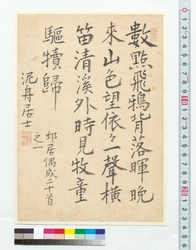 數點飛鴉背落暉晩
來山色望依々一聲橫
笛清溪外時見牧童
驅犢歸
邨居偶成二十首
之一
泥舟居士